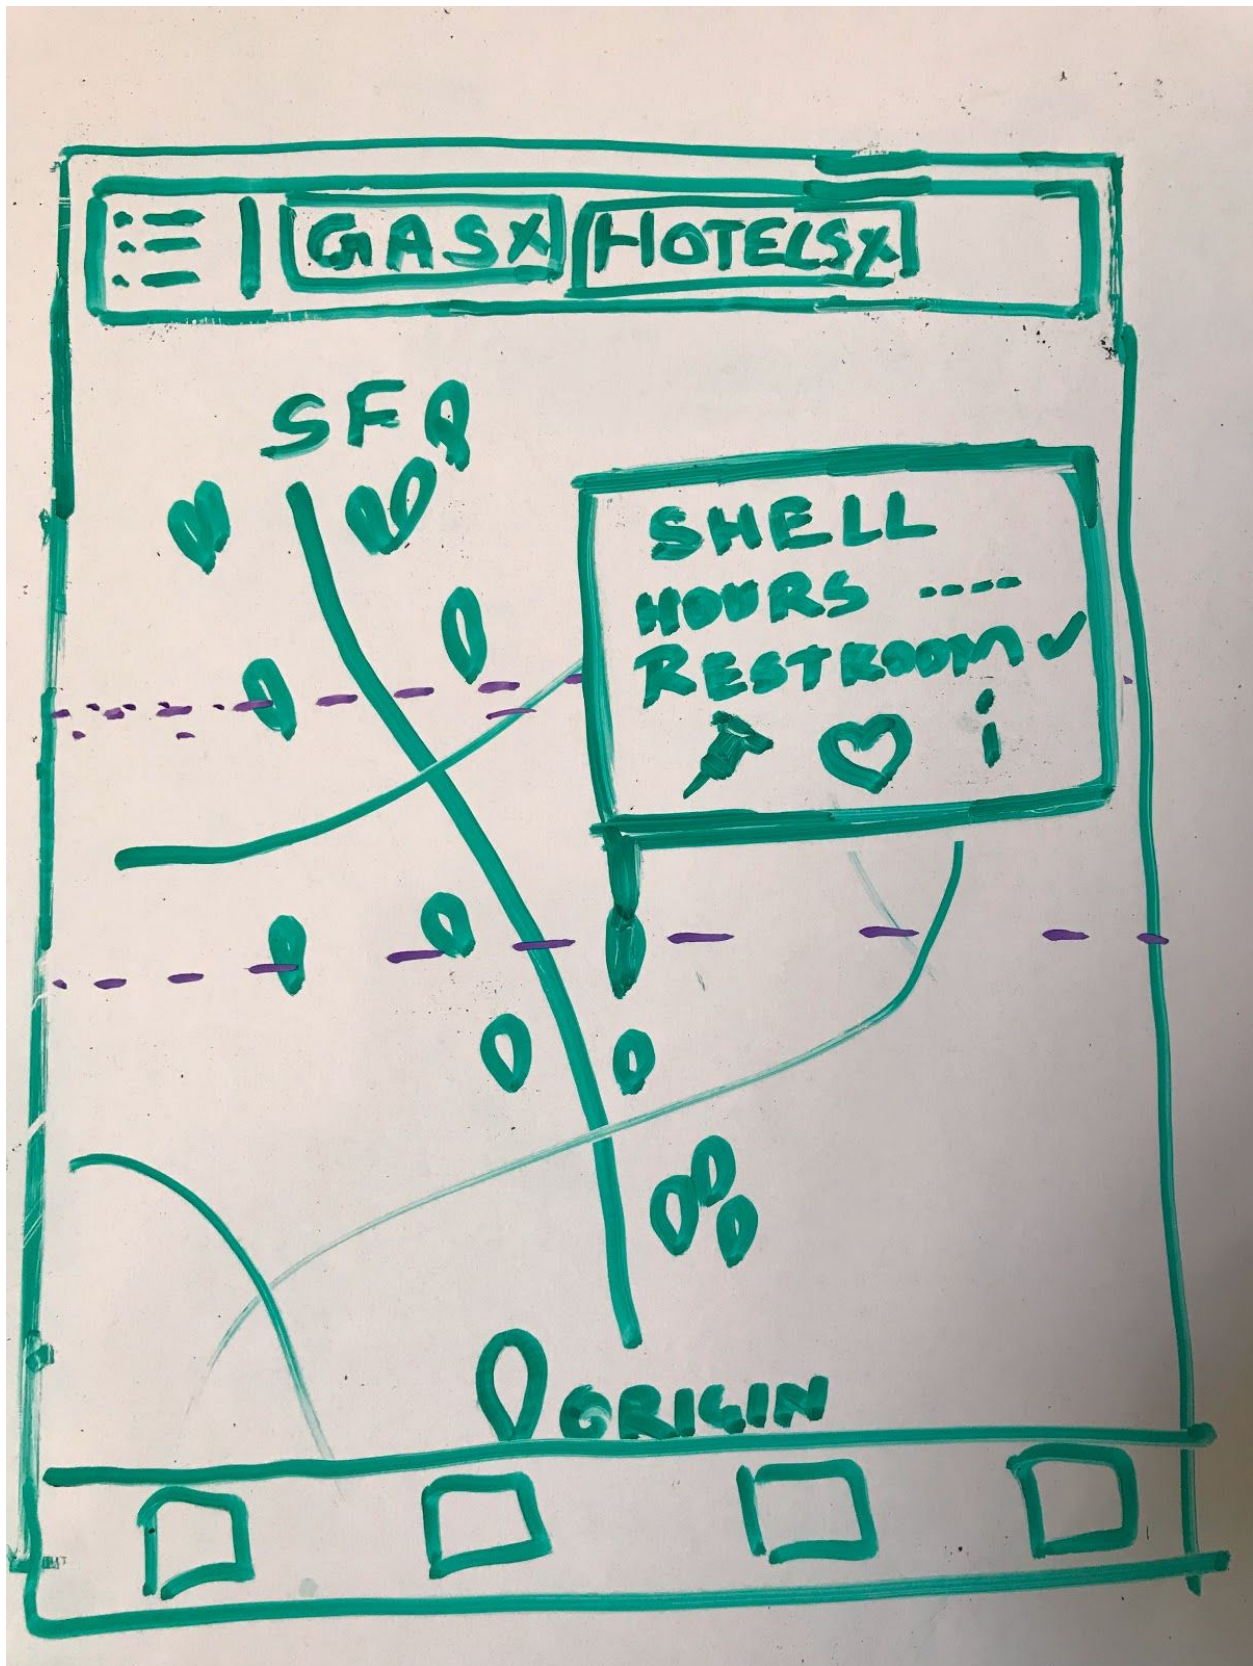 GAS X HOTELS X
SF
SHELL
HOURS ----
RESTROOM ✓
i
ORIGIN